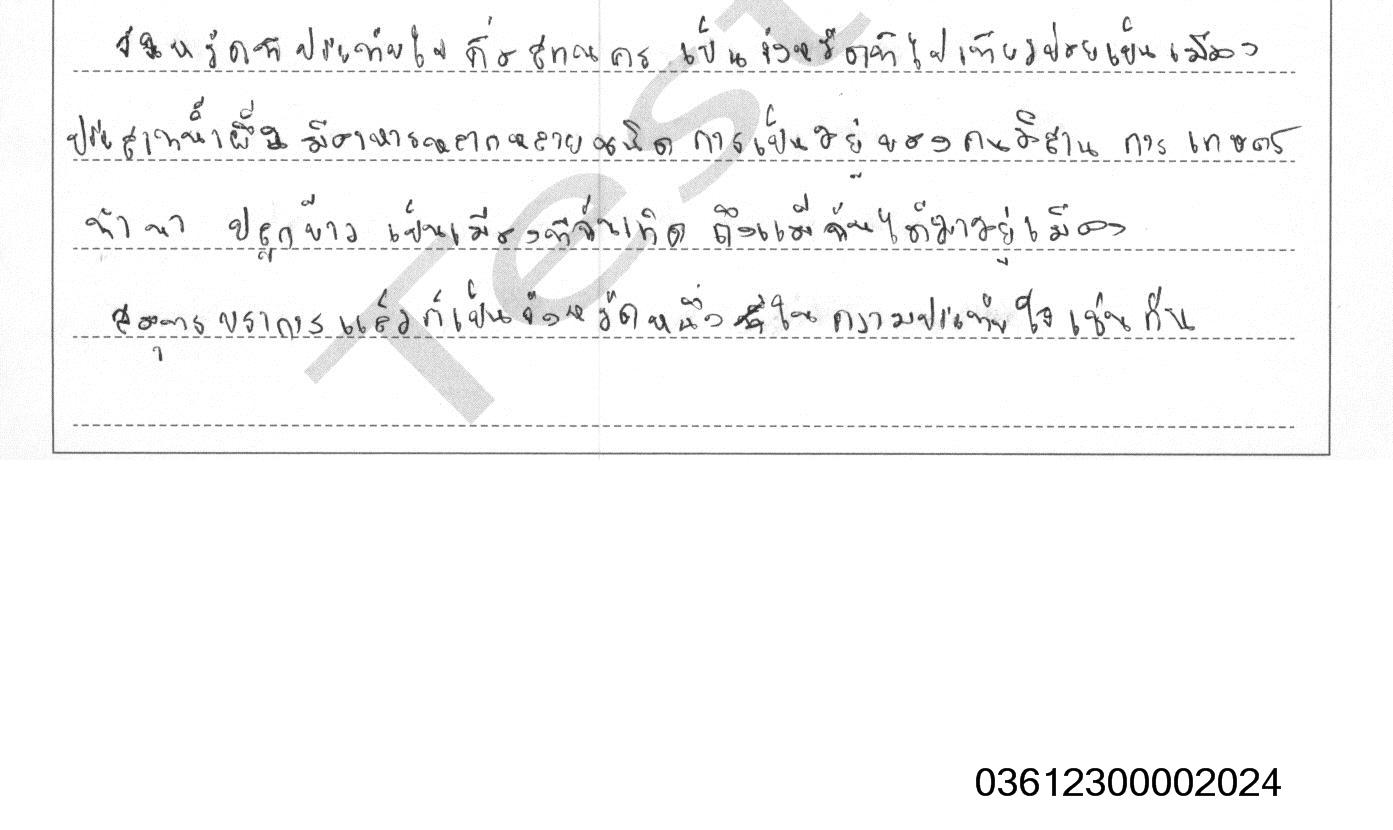 จังหวัดที่ประทับใจ คือ สกลนคร เป็นจังหวัดที่ไปเที่ยวบ่อยเป็นเมือง
มีอาหารหลากหลายชนิด การเป็นอยู่ของคนอีสาน การเกษตร
ทำนา ปลูกข้าว เป็นเมืองที่ฉันเกิด ถึงแม้ฉันได้มาอยู่เมือง
สมุทรปราการแล้วก็เป็นจังหวัดหนึ่งที่ในความประทับใจเช่นกัน
Test
03612300002024